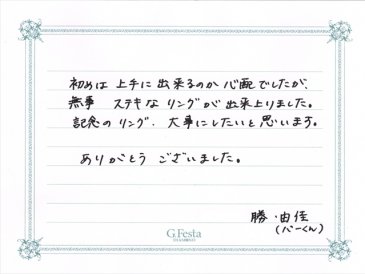 初めは 上手に 出来るのか 心配でしたが、
無事 ステキな リングが 出来上りました。
記念の リング、大事にしたいと思います。
ありがとう ございました。
勝・由佳
(パーくん)
G.Festa